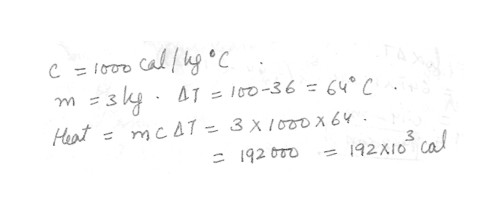 C = 1000 cal/kg °C.
m = 3kg. ΔT = 100-36 = 64° C.
Heat = mCΔT = 3×1000×64.
= 192000 = 192×10³ cal